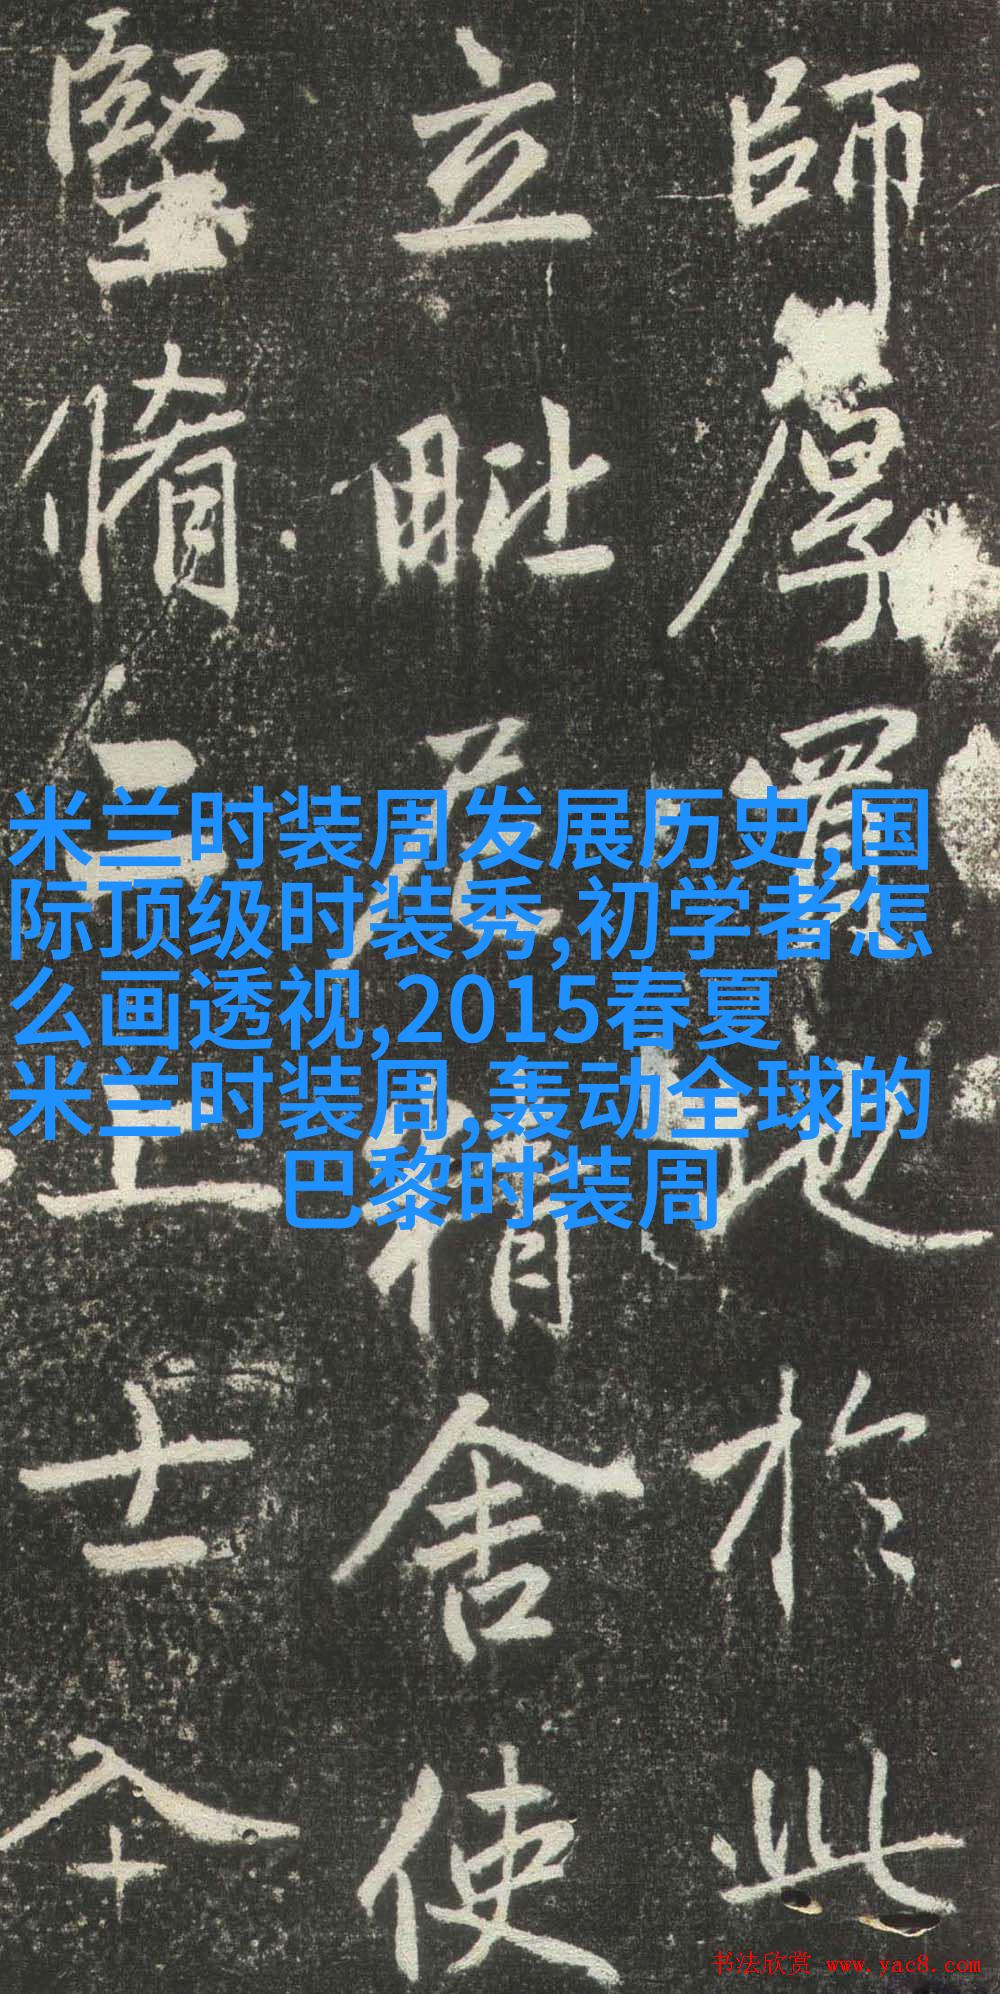 師厚買地於此
立毗尼精舍使
堅脩之士
米兰时装周发展历史,国
际顶级时装秀,初学者怎
么画透视,2015春夏
米兰时装周,轰动全球的
巴黎时装周
书法欣赏 www.yac8.com